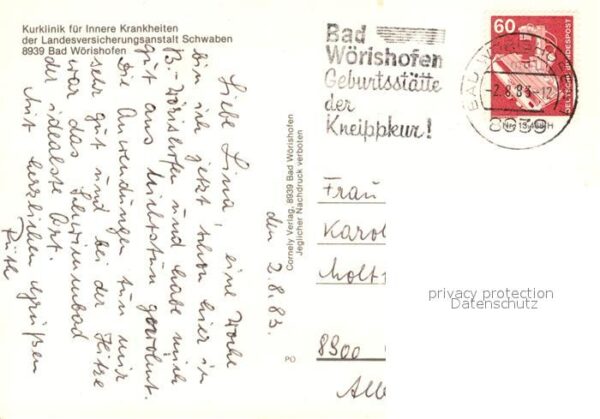 Kurklinik für Innere Krankheiten
der Landesversicherungsanstalt Schwaben
8939 Bad Wörishofen
Bad
Wörishofen
Geburtsstätte
der
Kneippkur!
60
DEUTSCHE BUNDESPOST
-2.8.83-12
8939
den 2.8.83.
Liebe Lina, eine Woche
bin ich jetzt schon hier in
B.-Wörishofen und habe mich
gut ans Nichtstun gewöhnt.
Die Anwendungen tun mir
sehr gut und bei der Hitze
war das Schwimmbad
der idealste Ort.
Mit herzlichen Grüßen
Ruth
Cornely Verlag, 8939 Bad Wörishofen
Jeglicher Nachdruck verboten
Nr. 13 498 H
PO
Frau
Karol
Moltk
8900
privacy protection
Datenschutz